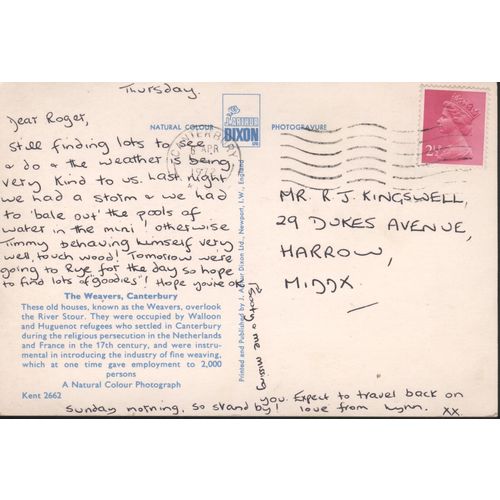 Thursday.
Dear Roger,
Still finding lots to see
& do & the weather is being
very kind to us. Last night
we had a storm & we had
to 'bale out' the pools of
water in the mini! otherwise
Timmy behaving himself very
well, touch wood! Tomorrow were
going to Rye for the day so hope
to find lots of 'goodies'! Hope you're ok
& me missing
you. Expect to travel back on
Sunday morning, so stand by! love from Lynn. xx.
The Weavers, Canterbury
These old houses, known as the Weavers, overlook
the River Stour. They were occupied by Walloon
and Huguenot refugees who settled in Canterbury
during the religious persecution in the Netherlands
and France in the 17th century, and were instru-
mental in introducing the industry of fine weaving,
which at one time gave employment to 2,000
persons
A Natural Colour Photograph
Kent 2662
NATURAL COLOUR
J. ARTHUR
DIXON
PHOTOGRAVURE
Printed and Published by J. Arthur Dixon Ltd., Newport, I.W., England
CANTERBURY
6 APR
2½
MR. R.J. KINGSWELL,
29 DUKES AVENUE,
HARROW,
MIDDX